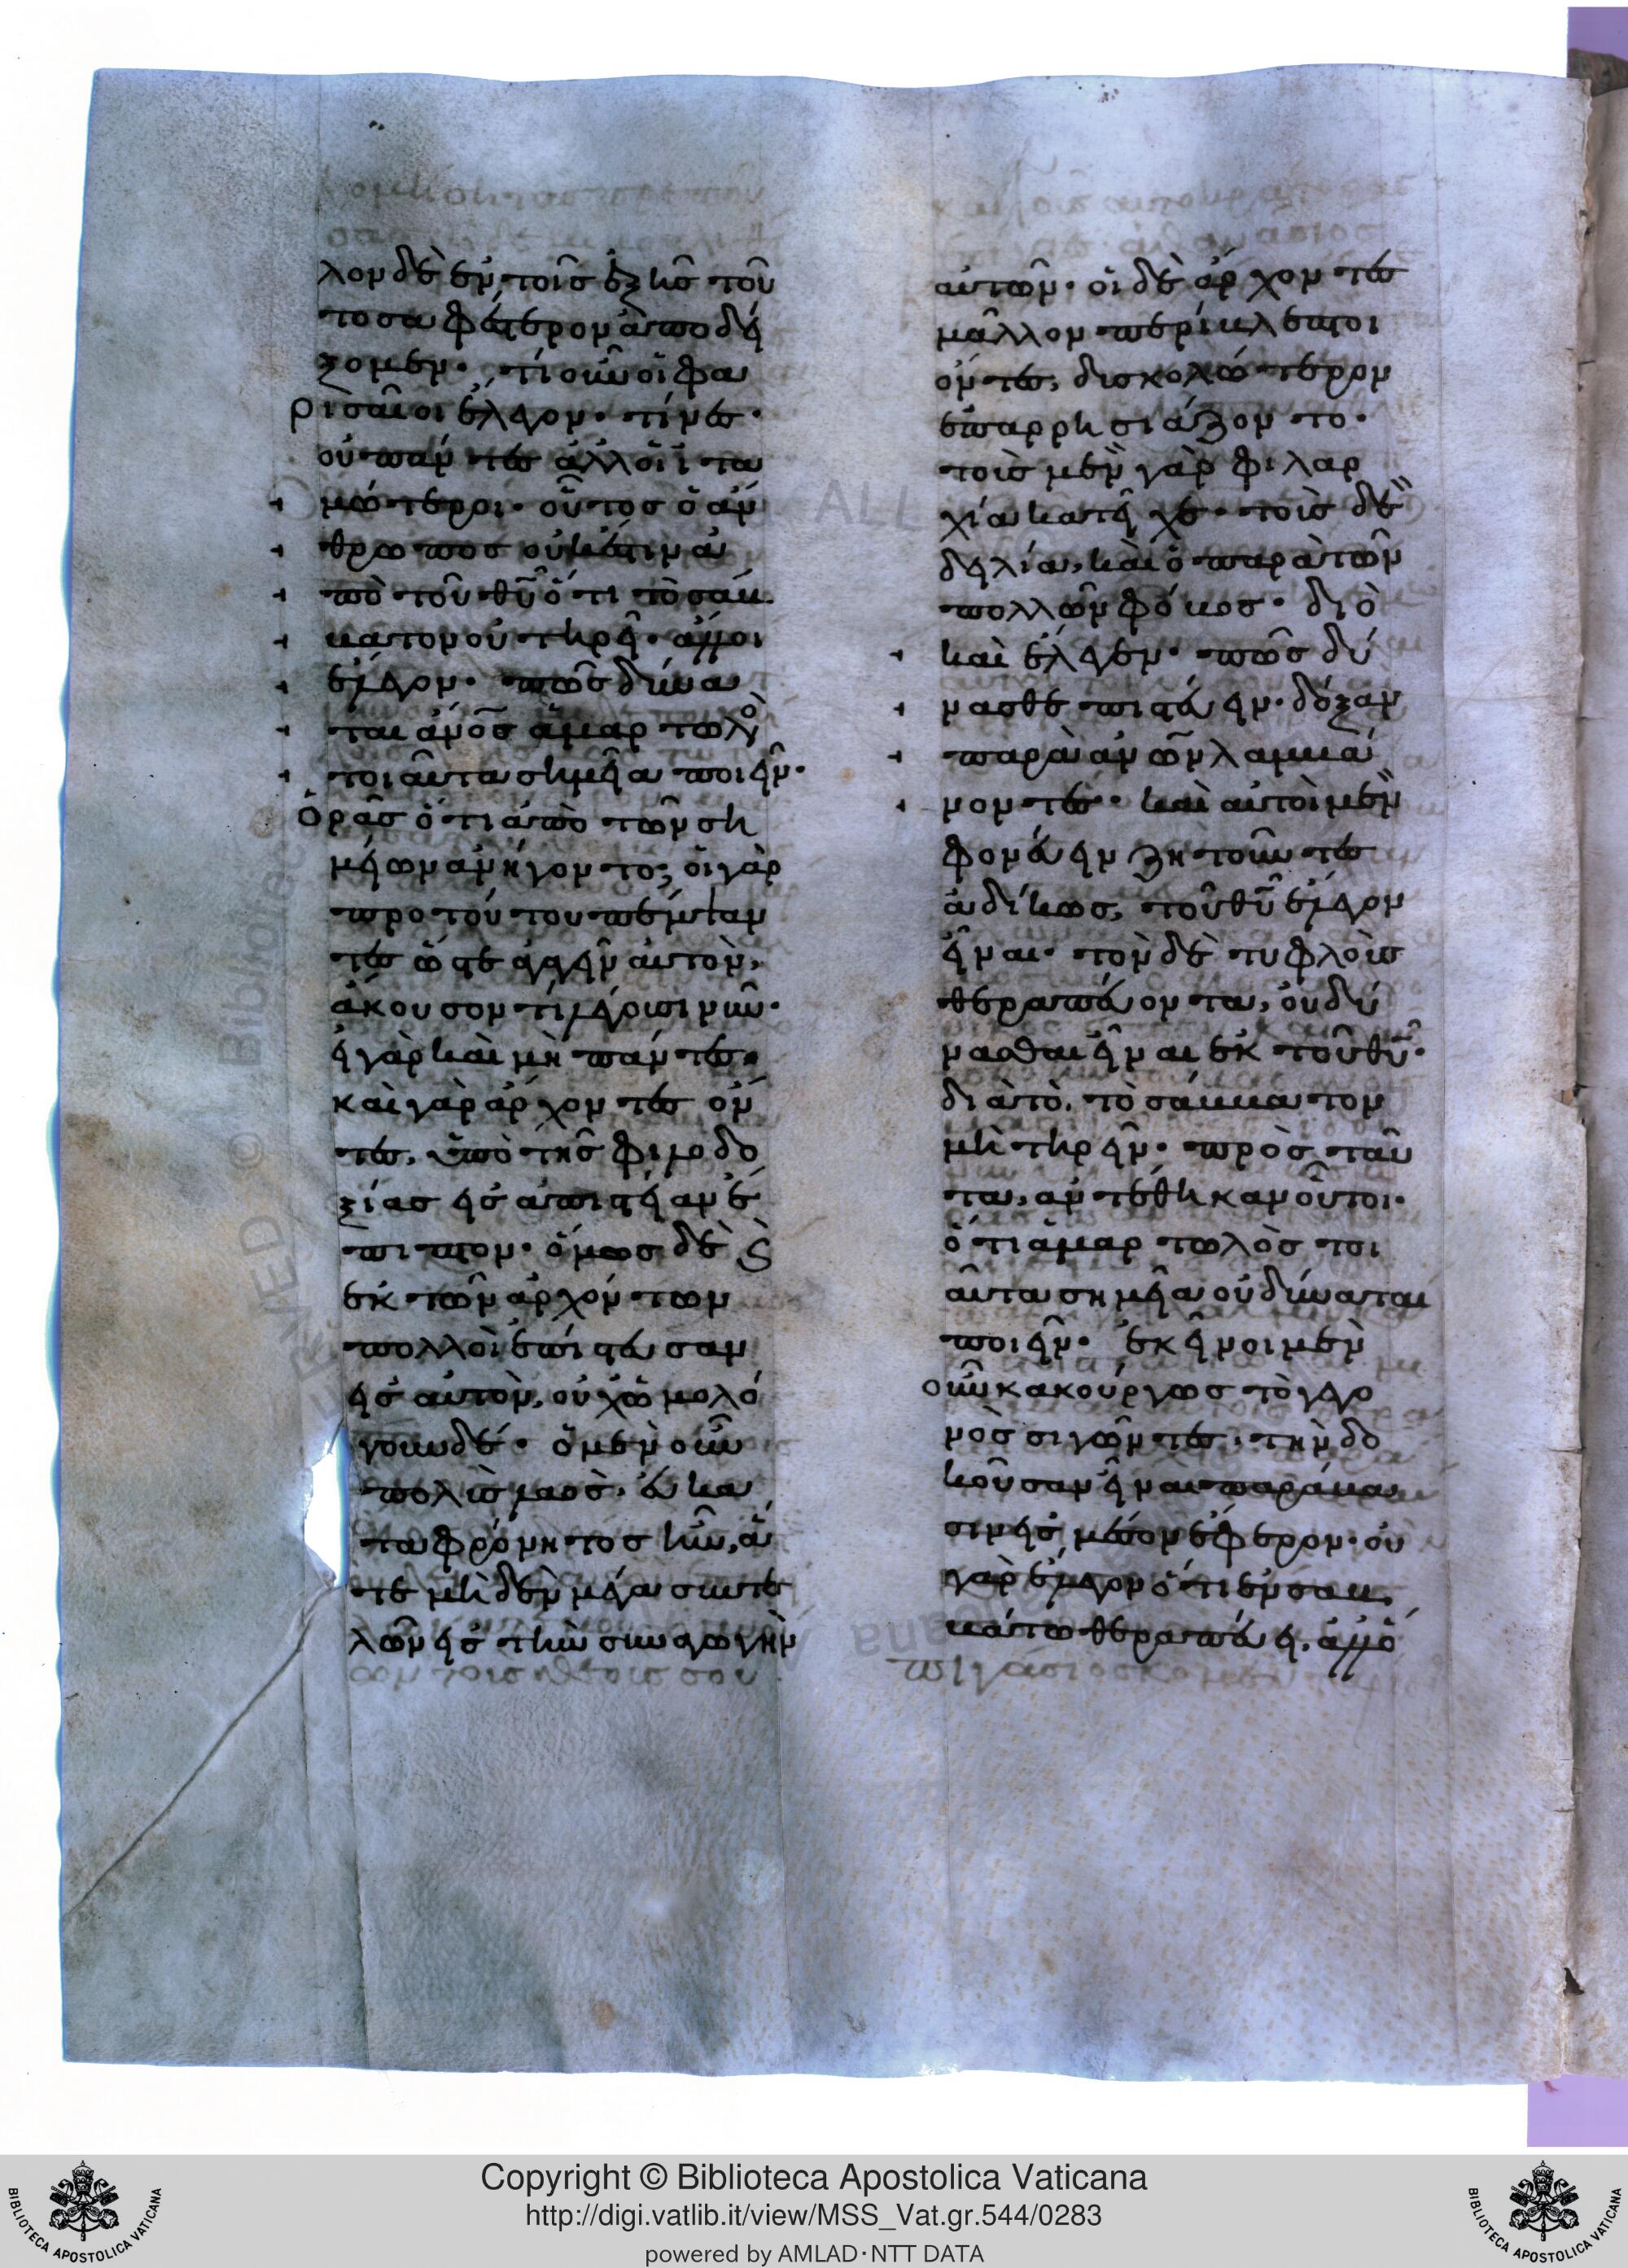 λον δὲ ἐν τοῖς ἑξῆς τοῦ
το σαφέστερον ἀποδεί
ξομεν· τί οὖν οἱ φα
ρισαῖοι ἔλεγον· τινές·
οὐ πάντες ἀλλ' οἱ ἰτα
μώτεροι· οὗτος ὁ ἄν
θρωπος οὐκ ἔστιν ἀ
πὸ τοῦ θυ ὅτι τὸ σάβ
βατον οὐ τηρεῖ· ἄλλοι
ἔλεγον· πῶς δύνα
ται ἀνος ἁμαρτωλὸ
τοιαῦτα σημεῖα ποιεῖν·
Ὁρᾶς ὅτι ἀπὸ τῶν ση
μείων ἀνήγοντο; οἱ γὰρ
πρὸ τούτου πέμψαν
τες ὥστε ἀγαγεῖν αὐτὸν,
ἄκουσον τί λέγουσι νῦν·
εἰ γὰρ καὶ μὴ πάντες·
καὶ γὰρ ἄρχοντες ὄν
τες, ὑπὸ τῆς φιλοδο
ξίας εἰς ἀπιστείαν ἐ
πιπτον· ὅμως δὲ ϛ
ἐκ τῶν ἀρχόντων
πολλοὶ ἐπίστευσαν
εἰς αὐτὸν, οὐχ ὡμολό
γουν δέ· ὁ μὲν οὖν
πολὺς λαὸς, εὐκα
ταφρόνητος ἦν, ἅ
τε μηδὲν μέγα συντε
λῶν εἰς τὴν συναγωγὴν
αὐτῶν· οἱ δὲ ἄρχοντες
μᾶλλον περίβλεπτοι
ὄντες, δυσκολώτερον
ἐπαρρησιάζοντο·
τοὺς μὲν γὰρ φιλαρ
χία κατεῖχε· τοὺς δὲ
δειλία, καὶ ὁ παρὰ τῶν
πολλῶν φόβος· διὸ
καὶ ἔλεγεν· πῶς δύ
νασθε πιστεύειν· δόξαν
παρὰ ανων λαμβά
νοντες· καὶ αὐτοὶ μὲν
φονεύειν ζητοῦντες
ἀδίκως, τοῦ θυ ἔλεγον
εἶναι· τὸν δὲ τυφλοὺς
θεραπεύοντα, οὐ δύ
νασθαι εἶναι ἐκ τοῦ θυ·
διὰ τὸ, τὸ σάββατον
μὴ τηρεῖν· πρὸς ταῦ
τα, ἀντέθηκαν οὗτοι·
ὅτι ἁμαρτωλὸς τοι
αῦτα σημεῖα οὐ δύναται
ποιεῖν· ἐκεῖνοι μὲν
οὖν κακούργως τὸ γεγο
νὸς σιγῶντες, τὴν δο
κοῦσαν εἶναι παράβα
σιν εἰς μέσον ἔφερον· οὐ
γὰρ ἔλεγον ὅτι ἐν σαβ
βάτω θεραπεύει, ἀλλ' ὅ
Copyright © Biblioteca Apostolica Vaticana
http://digi.vatlib.it/view/MSS_Vat.gr.544/0283
powered by AMLAD·NTT DATA